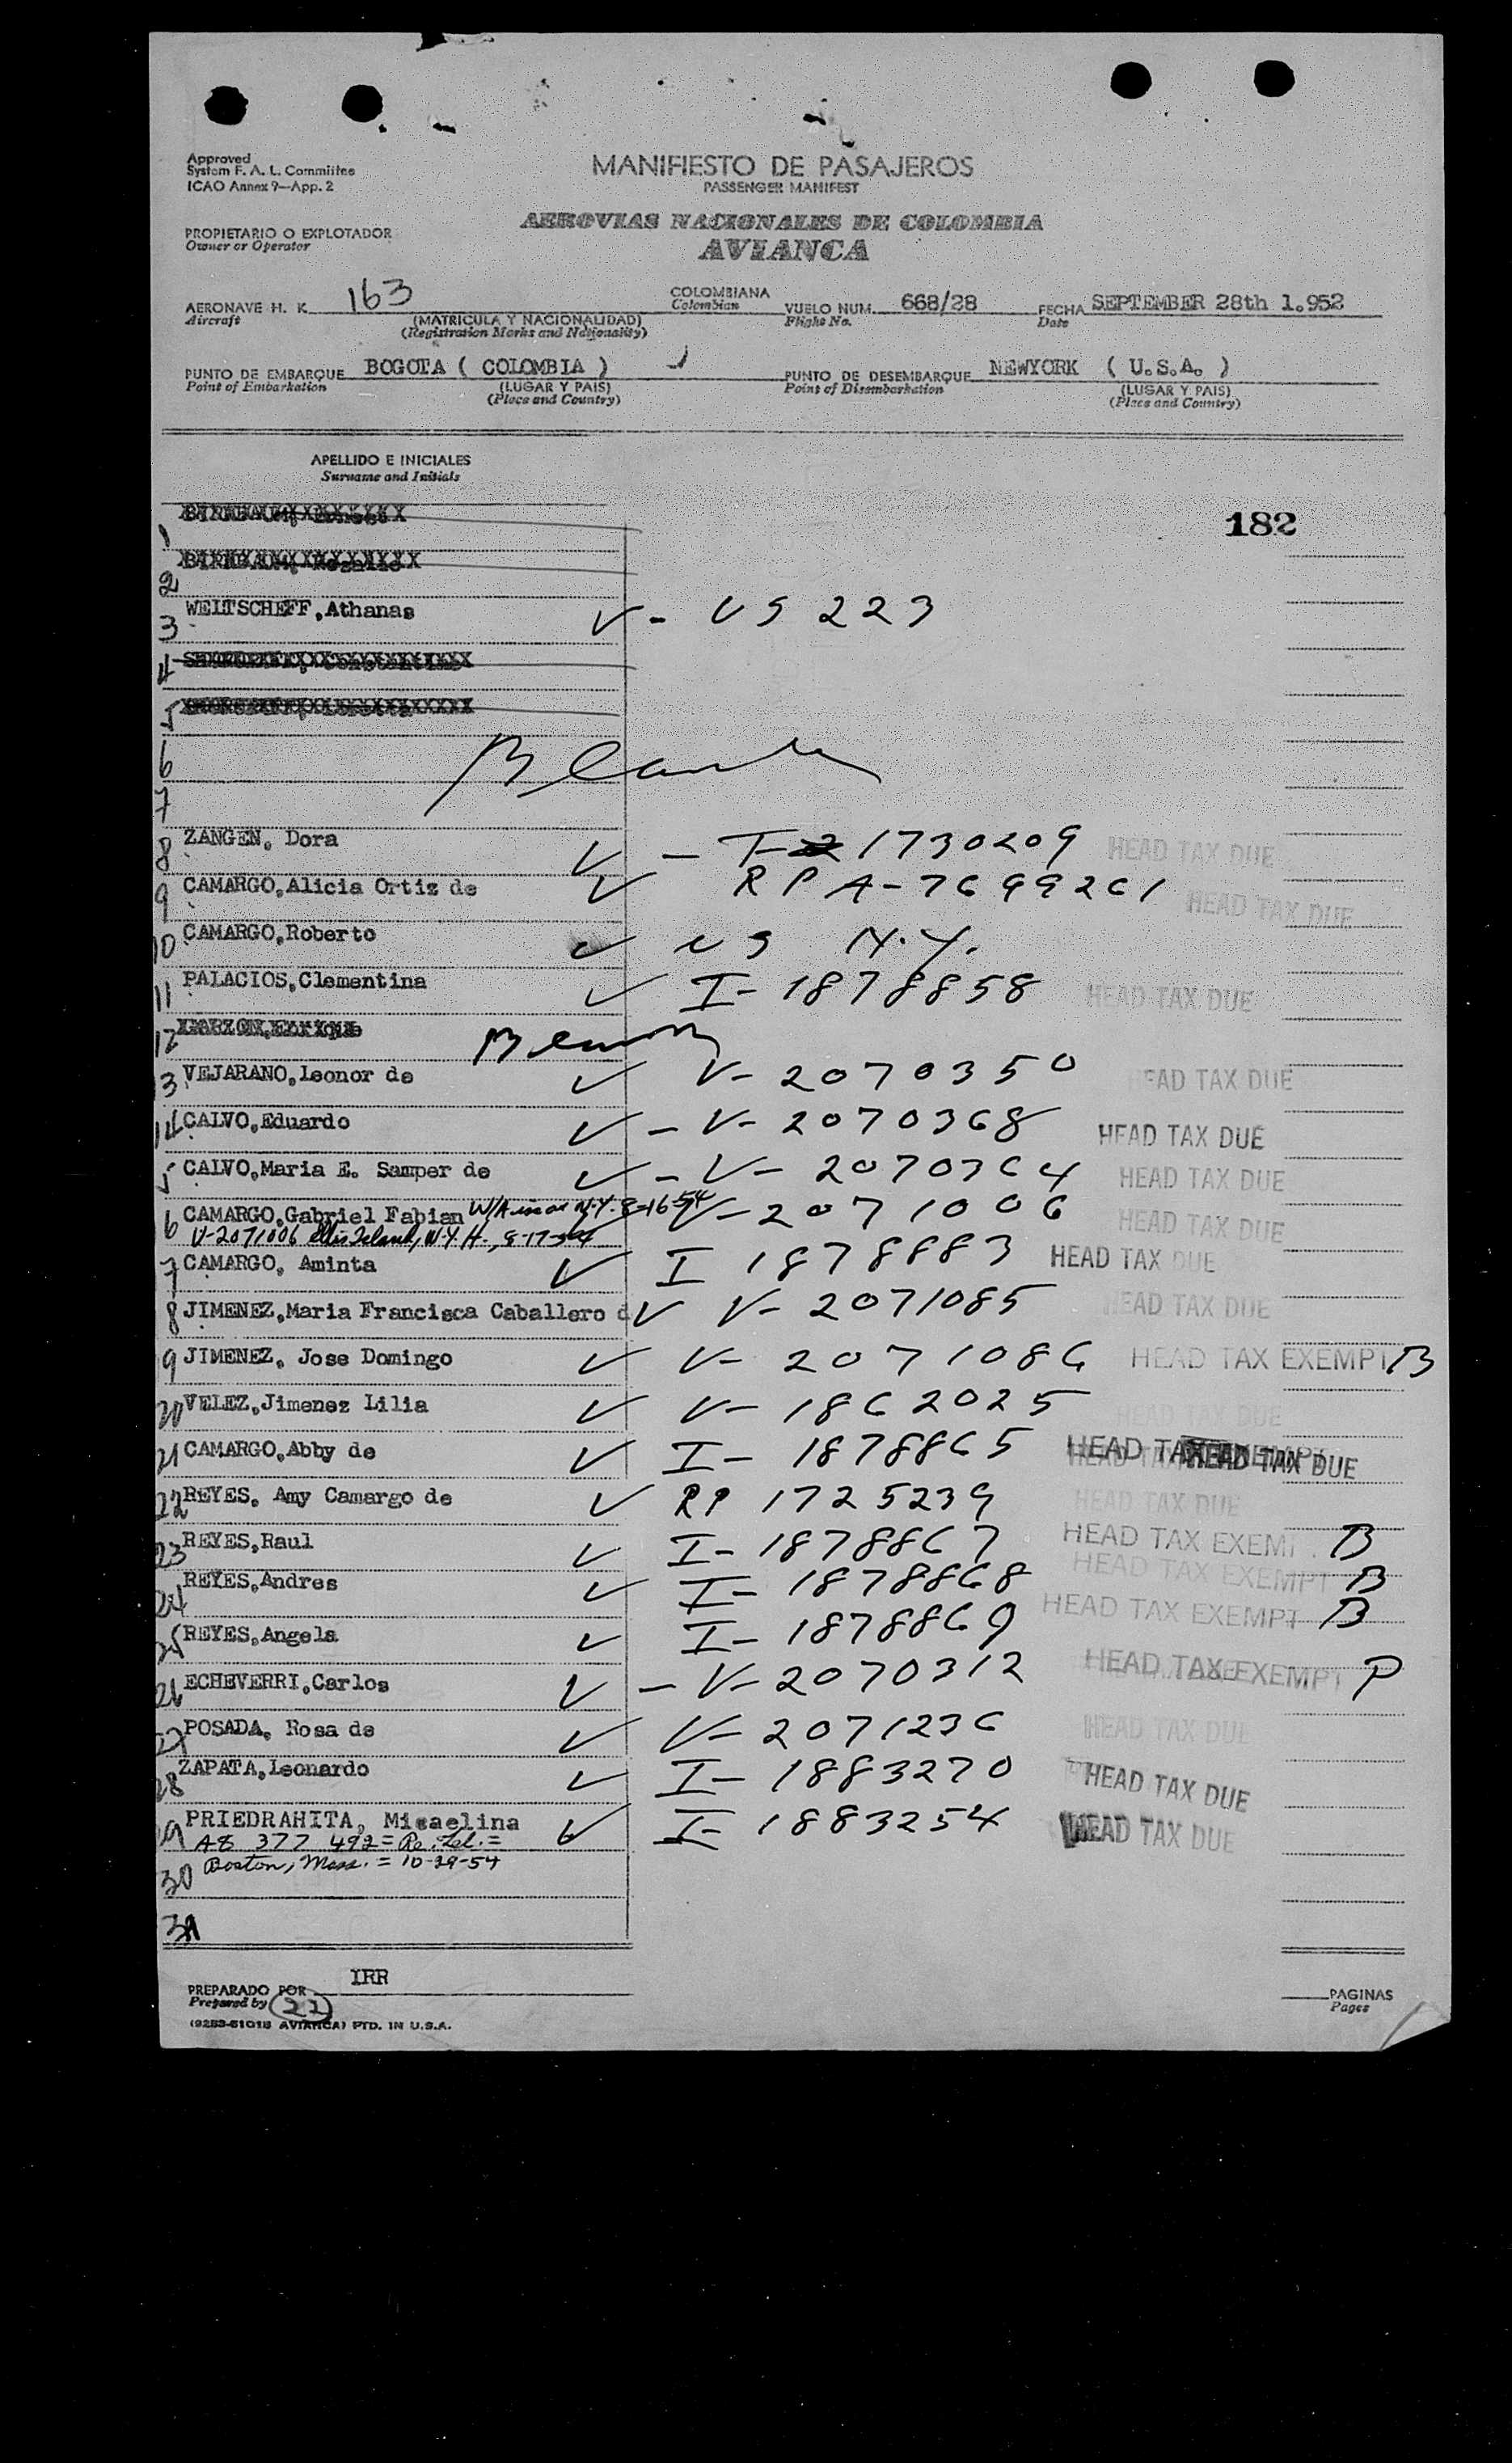 Approved
System F. A. L. Committee
ICAO Annex 9—App. 2
MANIFIESTO DE PASAJEROS
PASSENGER MANIFEST
AEROVIAS NACIONALES DE COLOMBIA
AVIANCA
PROPIETARIO O EXPLOTADOR
Owner or Operator
AERONAVE H. K. 163 COLOMBIANA VUELO NUM. 668/28 FECHA SEPTEMBER 28th 1.952
Aircraft (MATRICULA Y NACIONALIDAD) Colombian Flight No. Date
(Registration Marks and Nationality)
PUNTO DE EMBARQUE BOGOTA ( COLOMBIA ) PUNTO DE DESEMBARQUE NEWYORK ( U.S.A. )
Point of Embarkation (LUGAR Y PAIS) Point of Disembarkation (LUGAR Y PAIS)
(Place and Country) (Place and Country)
APELLIDO E INICIALES
Surname and Initials
182
1
2
3 WELTSCHEFF, Athanas V - US 223
4
5
6 Blank
7
8 ZANGEN, Dora V - I- 1730209 HEAD TAX DUE
9 CAMARGO, Alicia Ortiz de V RP A-7699261 HEAD TAX DUE
10 CAMARGO, Roberto V US N.Y.
11 PALACIOS, Clementina V I- 1878858 HEAD TAX DUE
12 Blank
3 VEJARANO, Leonor de V V- 2070350 HEAD TAX DUE
14 CALVO, Eduardo V - V- 2070368 HEAD TAX DUE
5 CALVO, Maria E. Samper de V - V- 2070364 HEAD TAX DUE
6 CAMARGO, Gabriel Fabian N.Y. 8-16-54 V- 2071006 HEAD TAX DUE
V-2071006 Ellis Island, N.Y.H., 8-17-54
7 CAMARGO, Aminta V I 1878883 HEAD TAX DUE
8 JIMENEZ, Maria Francisca Caballero d V V- 2071085 HEAD TAX DUE
9 JIMENEZ, Jose Domingo V V- 2071086 HEAD TAX EXEMPT B
20 VELEZ, Jimenez Lilia V V- 1862025 HEAD TAX DUE
21 CAMARGO, Abby de V I- 1878865 HEAD TAX EXEMPT HEAD TAX DUE
22 REYES, Amy Camargo de V RP 1725239 HEAD TAX DUE
23 REYES, Raul V I- 1878867 HEAD TAX EXEM B
24 REYES, Andres V I- 1878868 HEAD TAX EXEMPT B
25 REYES, Angela V I- 1878869 HEAD TAX EXEMPT B
26 ECHEVERRI, Carlos V - V- 2070312 HEAD TAX EXEMPT P
27 POSADA, Rosa de V V- 2071236 HEAD TAX DUE
28 ZAPATA, Leonardo V I- 1883270 HEAD TAX DUE
29 PRIEDRAHITA, Micaelina V I- 1883254 HEAD TAX DUE
A8 377 492 = Re. Tel. =
30 Boston, Mass. = 10-29-54
31
PREPARADO POR IRR PAGINAS
Prepared by 22 Pages
(9253-5101B AVIANCA) PTD. IN U.S.A.